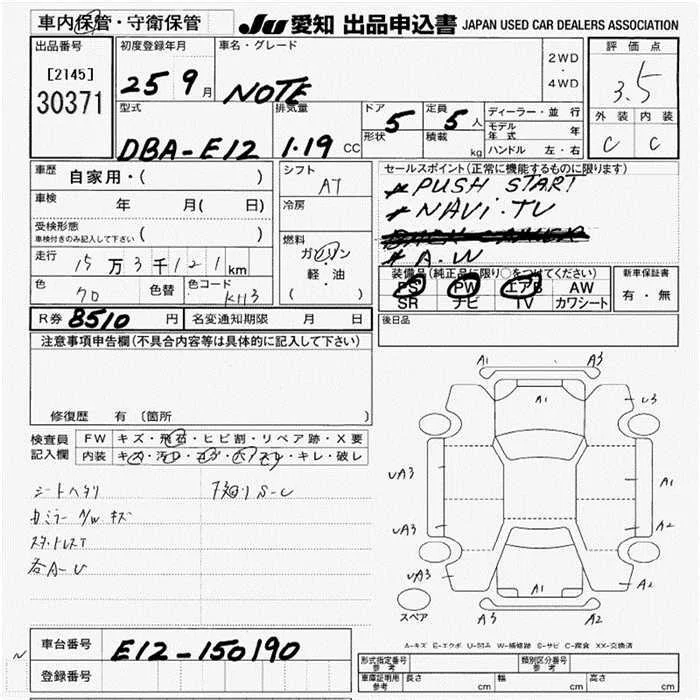 車内保管・守衛保管
JU 愛知 出品申込書 JAPAN USED CAR DEALERS ASSOCIATION
出品番号
[2145]
30371
初度登録年月
25 9月
車名・グレード
NOTE
2WD
・
4WD
評価点
3.5
外装 内装
C C
型式
DBA-E12
排気量
1.19 CC
ドア 5
形状
定員 5 人
積載 kg
ディーラー・並行
モデル年式 年
ハンドル 左・右
車歴 自家用・( )
車検 年 月( 日)
受検形態
車検付きのみ記入して下さい ( )
走行 15万3千121km
色 色替 色コード K113
シフト AT
冷房
燃料
ガソリン
・
軽油
( )
セールスポイント(正常に機能するものに限ります)
* PUSH START
* NAVi.TV
* A.W
装備品(純正品に限り○をつけてください)
PS PW エアB AW
SR ナビ TV カワシート
新車保証書
有・無
R券 8510 円 名変通知期限 月 日
後日品
注意事項申告欄(不具合内容等は具体的に記入して下さい)
修復歴 有 (箇所 )
検査員記入欄
FW キズ・飛石・ヒビ割・リペア跡・X要
内装 キズ・汚れ・コゲ・穴・スレ・キレ・破レ
シートヘタリ 下廻りS-C
カミラー N/W キズ
スタットレスT
各A-U
A1 A3
A1
U3
UA3
A1
UA3
A2
UA3
A1
A2
A3 A2
スペア
A-キズ E-エクボ U-凹み W-補修跡 S-サビ C-腐食 XX-交換済
車台番号 E12-150190
登録番号
形式指定番号 参考
類別区分番号 参考
車庫証明用 参考 長さ cm 幅 cm 高さ cm